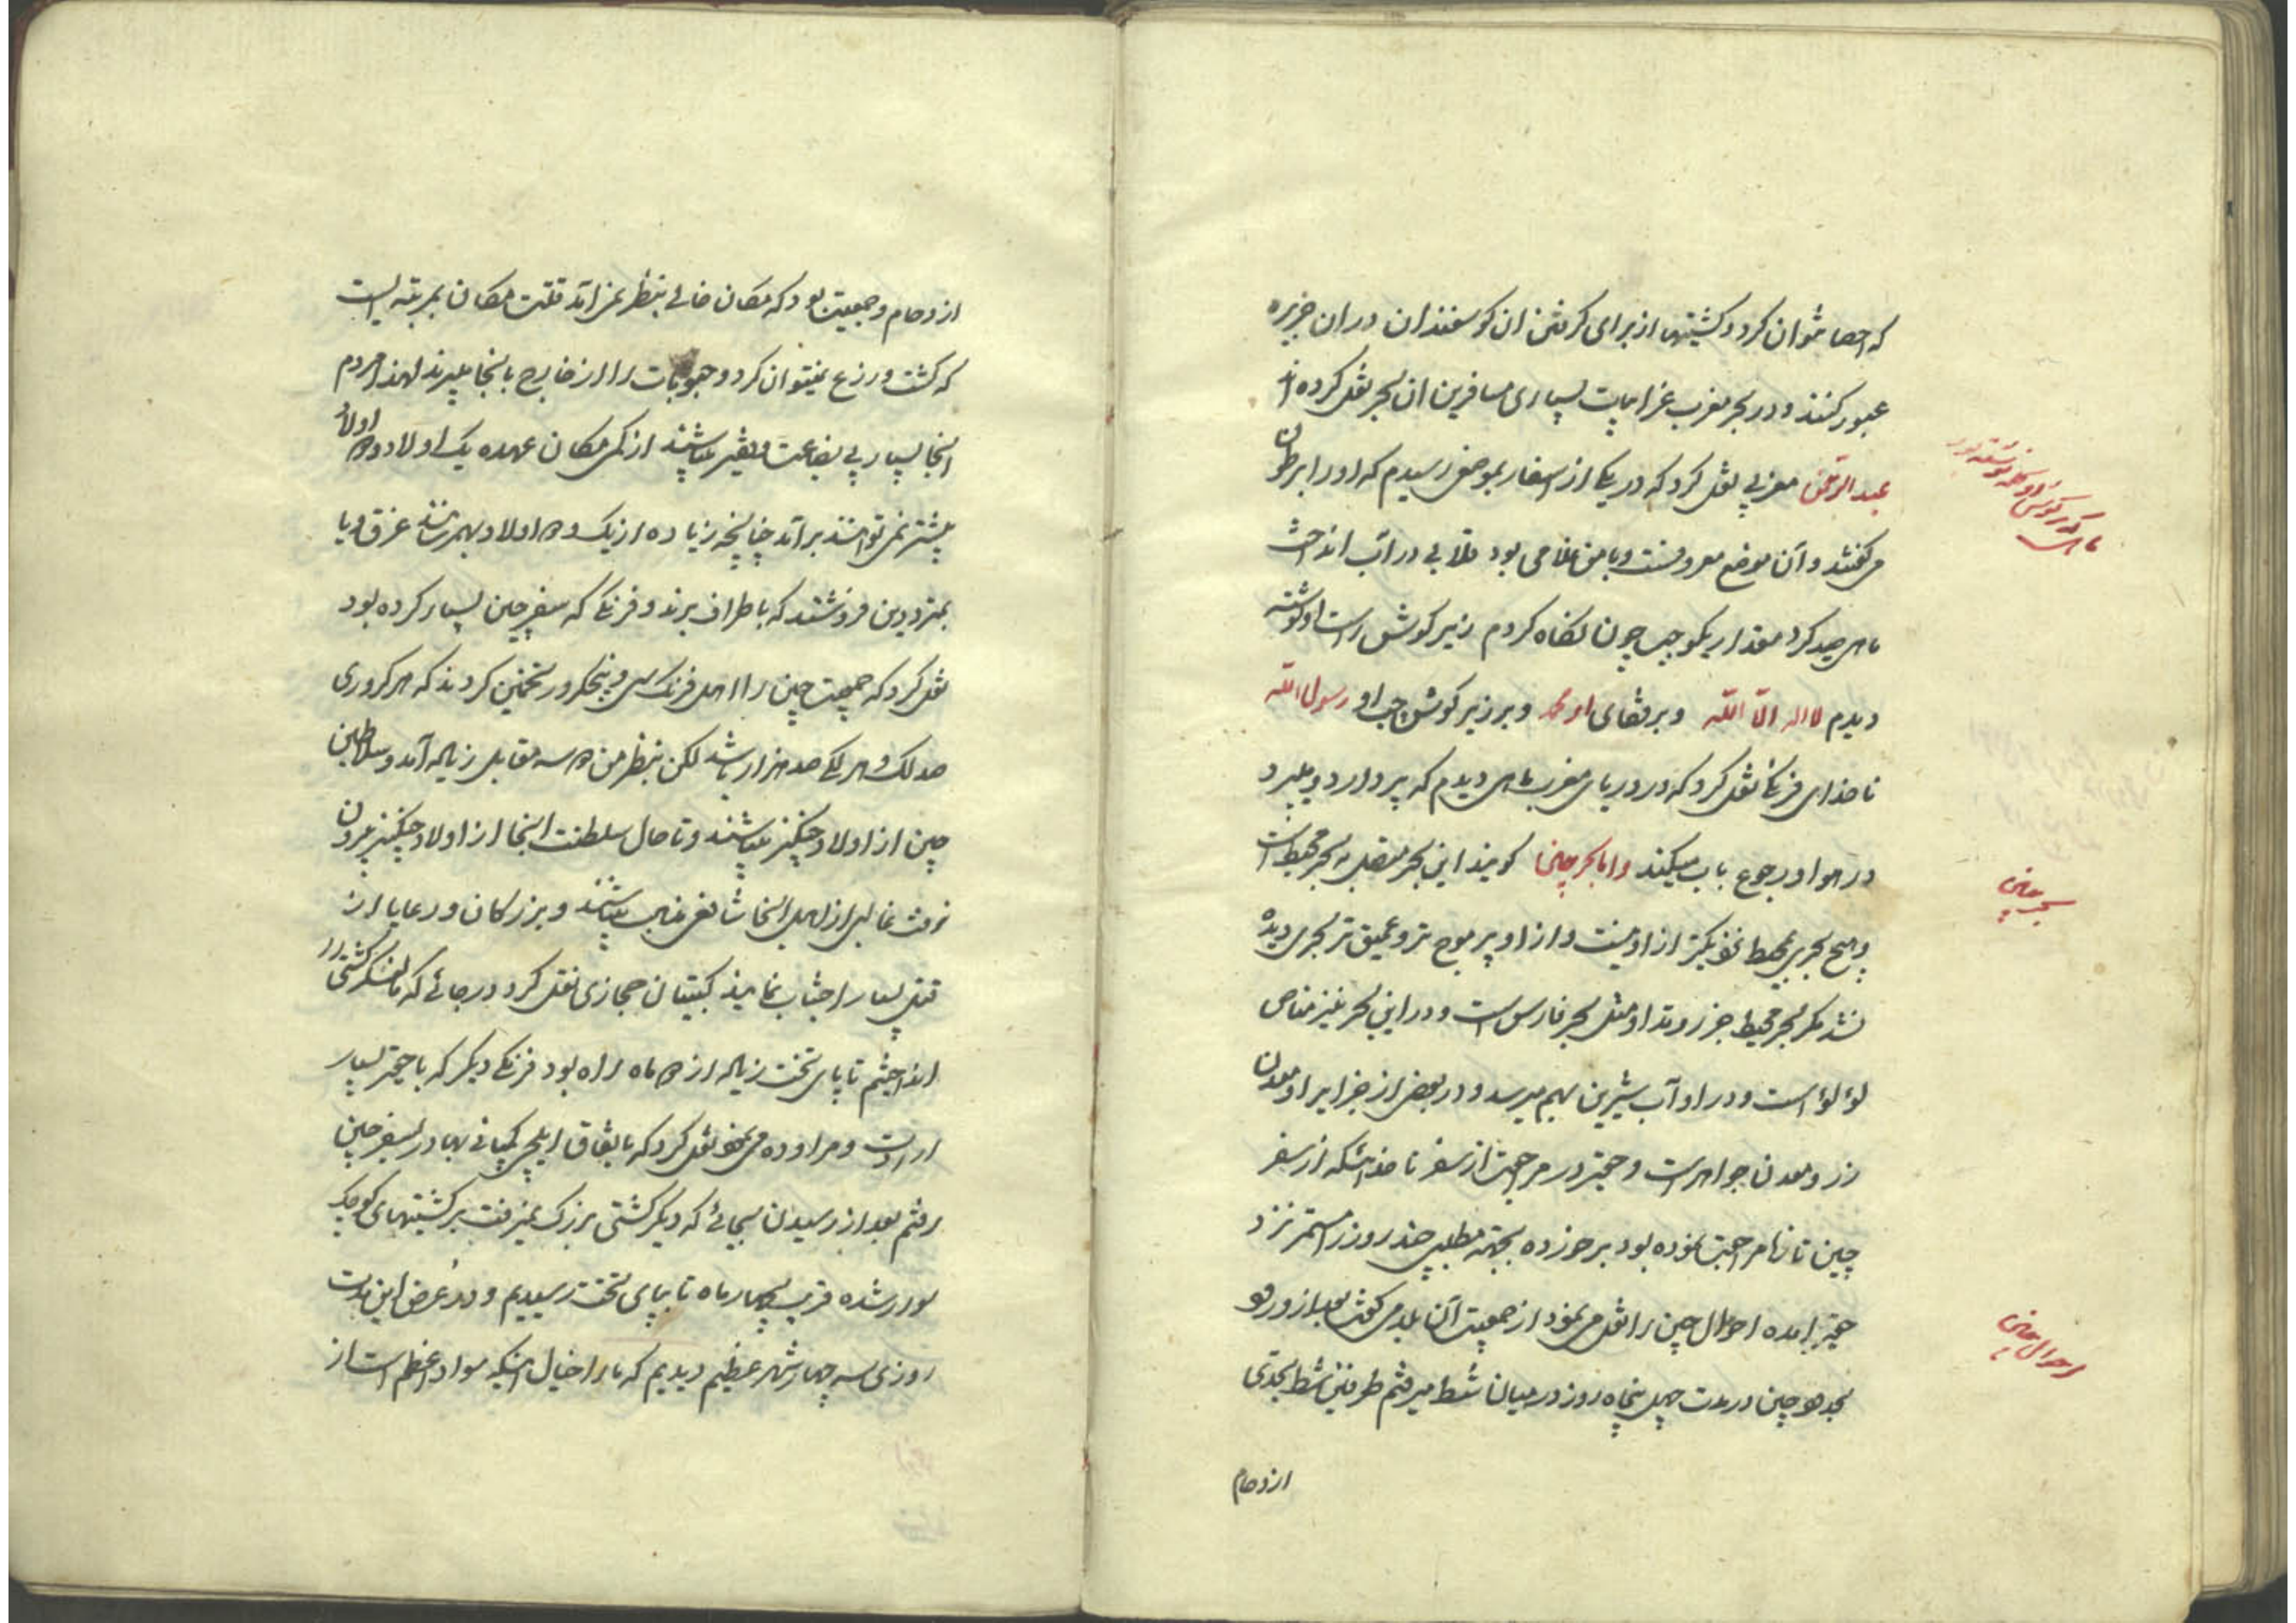 که احصا نتوان کرد و کشتیها از برای کرفتن ان کوسفندان در ان جزیره
عبور کنند و در بحر مغرب غرایبات بسیاری مسافرین ان بحر نقل کرده اند
عبد الرحمن مغربی نقل کرد که در یکی از اسفار بموضعی رسیدم که او را ابرطون
می کفتند و آن موضع معروفست و با من غلامی بود قلابی در آب انداخت
ماهی صید کرد مقدار یکوجب چون نکاه کردم زیر کوش راست او نوشته
دیدم لا اله الا الله و بر قفای او محمد و بر زیر کوش چپ او رسول الله
ناخدای فرنکی نقل کرد که در دریای مغرب ماهی دیدم که پر دارد و میپرد
در هوا و رجوع باب میکند و اما بحر چین کویند این بحر متصل به بحر محیط است
و هیچ بحری بمحیط نزدیکتر از او نیست و از او پر موج تر و عمیق تر بحری دیده
نشد مکر بحر محیط جزر و مد او مثل بحر فارس است و در این بحر نیز مغاص
لؤلؤ است و در او آب شیرین بهم میرسد و در بعضی از جزایر او معدن
زر و معدن جواهر است و حقیر در مراجعت از سفر ناخدائیکه از سفر
چین تازه مراجعت نموده بود برخورده بجهة مطلبی چند روز مستمر نزد
حقیر آمده احوال چین را نقل می نمود از جمعیت آن بلد می کفت بعد از ورود
بحدود چین در مدت چهل پنجاه روز در میان شط میرفتم طرفین شط بحدی
ازدحام
ماهی که زیر کوش او کلمه نوشته بود
بحر چین
احوال چین
ازدحام و جمعیت بود که مکان خالی بنظر نمی آمد قلت مکان بمرتبه ایست
که کشت و زرع نمیتوان کرد و حبوبات را از خارج بانجا میبرند لهذا مردم
انجا بسیار بی بضاعت و فقیر میباشند از کمی مکان عهده یک اولاد دو اولاد
بیشتر نمی توانند برآمد چنانچه زیاده از یک دو اولاد بهم رسانند غرق و یا
بمترددین فروشند که باطراف برند و فرنکی که سفر چین بسیار کرده بود
نقل کرد که جمعیت چین را اهل فرنک سی و پنجکرور تخمین کردند که هر کروری
صد لک و هر لکی صد هزار باشد لکن بنظر من سه مقابل زیاده آمد و سلاطین
چین از اولاد چنکیز میباشند و تا حال سلطنت انجا از اولاد چنکیز بیرون
نرفته غالبی از اهل انجا شافعی مذهب میباشند و بزرکان و رعایا از
قتل بسیار اجتناب نمایند کپیتان حجازی نقل کرد در جائی که ما لنکر کشتی را
انداختیم تا پای تخت زیاده از ماه راه بود فرنکی دیکر که با حقیر بسیار
ارادت و مراوده می نمود نقل کرد که باتفاق ایلچی کمپانی بهادر بسفر چین
رفتم بعد از رسیدن بجائی که دیکر کشتی بزرک نمیرفت بر کشتیهای کوچک
سوار شده قریب بچهار ماه تا بپای تخت رسیدیم و در عرض این مدت
روزی سه چهار شهر عظیم دیدیم که ما را خیال اینکه سواد اعظم است از